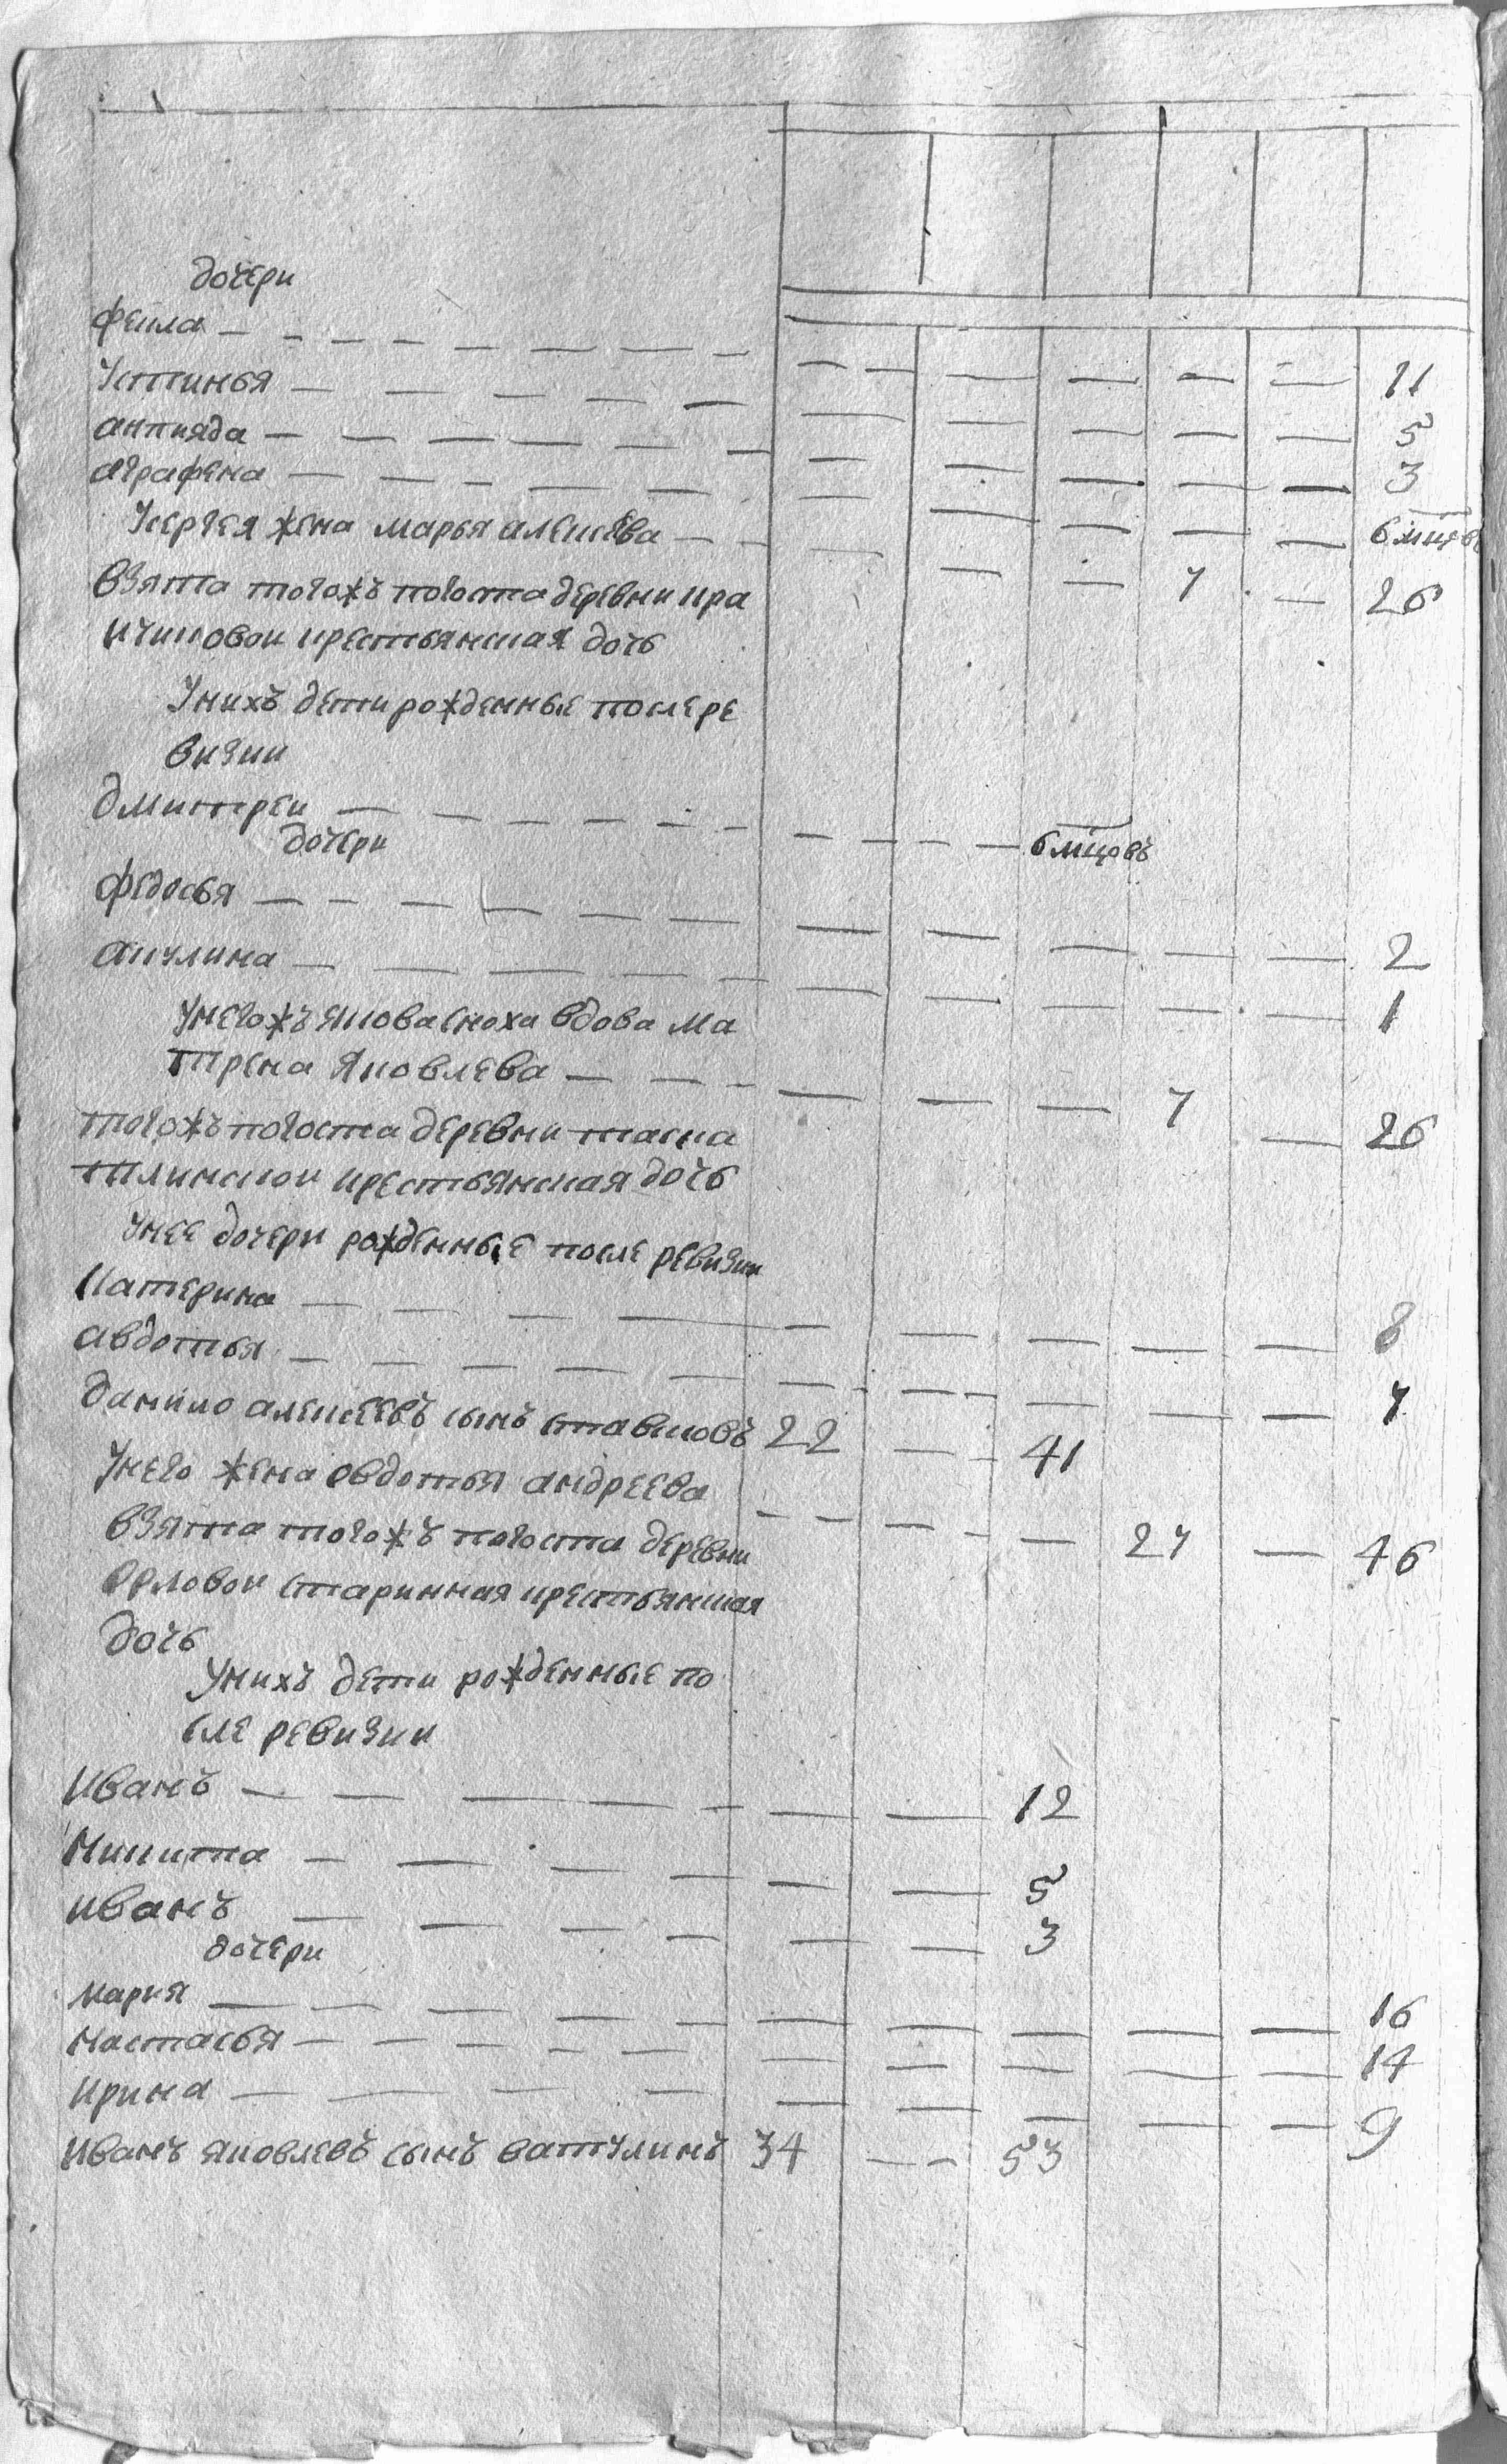 дочери
Фекла — — — 11
Устинья — — — 5
анкияда — — — 3
аграфена — — — 6 мцовъ
Усергея жена марья алексѣева — — 7 — 26
взята тогожъ погоста деревни кра
кчиновои крестьянская дочь
Унихъ дети рожденные послере
визии
дмитреи — — — 6 мцовъ
дочери
федосья — — — 2
акулина — — — 1
унегожъ якова сноха вдова Ма
трена Яковлева — — — 7 — 26
тогожъ погоста деревни таска
тлинскои крестьянская дочь
Унее дочери рожденные после ревизии
Катерина — — — 8
авдотья — — — 7
данило алексеевъ сынъ ставковъ 22 — 41
Унего жена овдотья андреева — — — 27 — 46
взята тогожъ погоста деревни
Орловои старинная крестьянская
дочь
Унихъ дети рожденные по
сле ревизии
Иванъ — — — 12
Никита — — — 5
иванъ — — — 3
дочери
мария — — — 16
настасья — — — 14
ирина — — — 9
иванъ яковлевъ сынъ ватулинъ 34 — 53